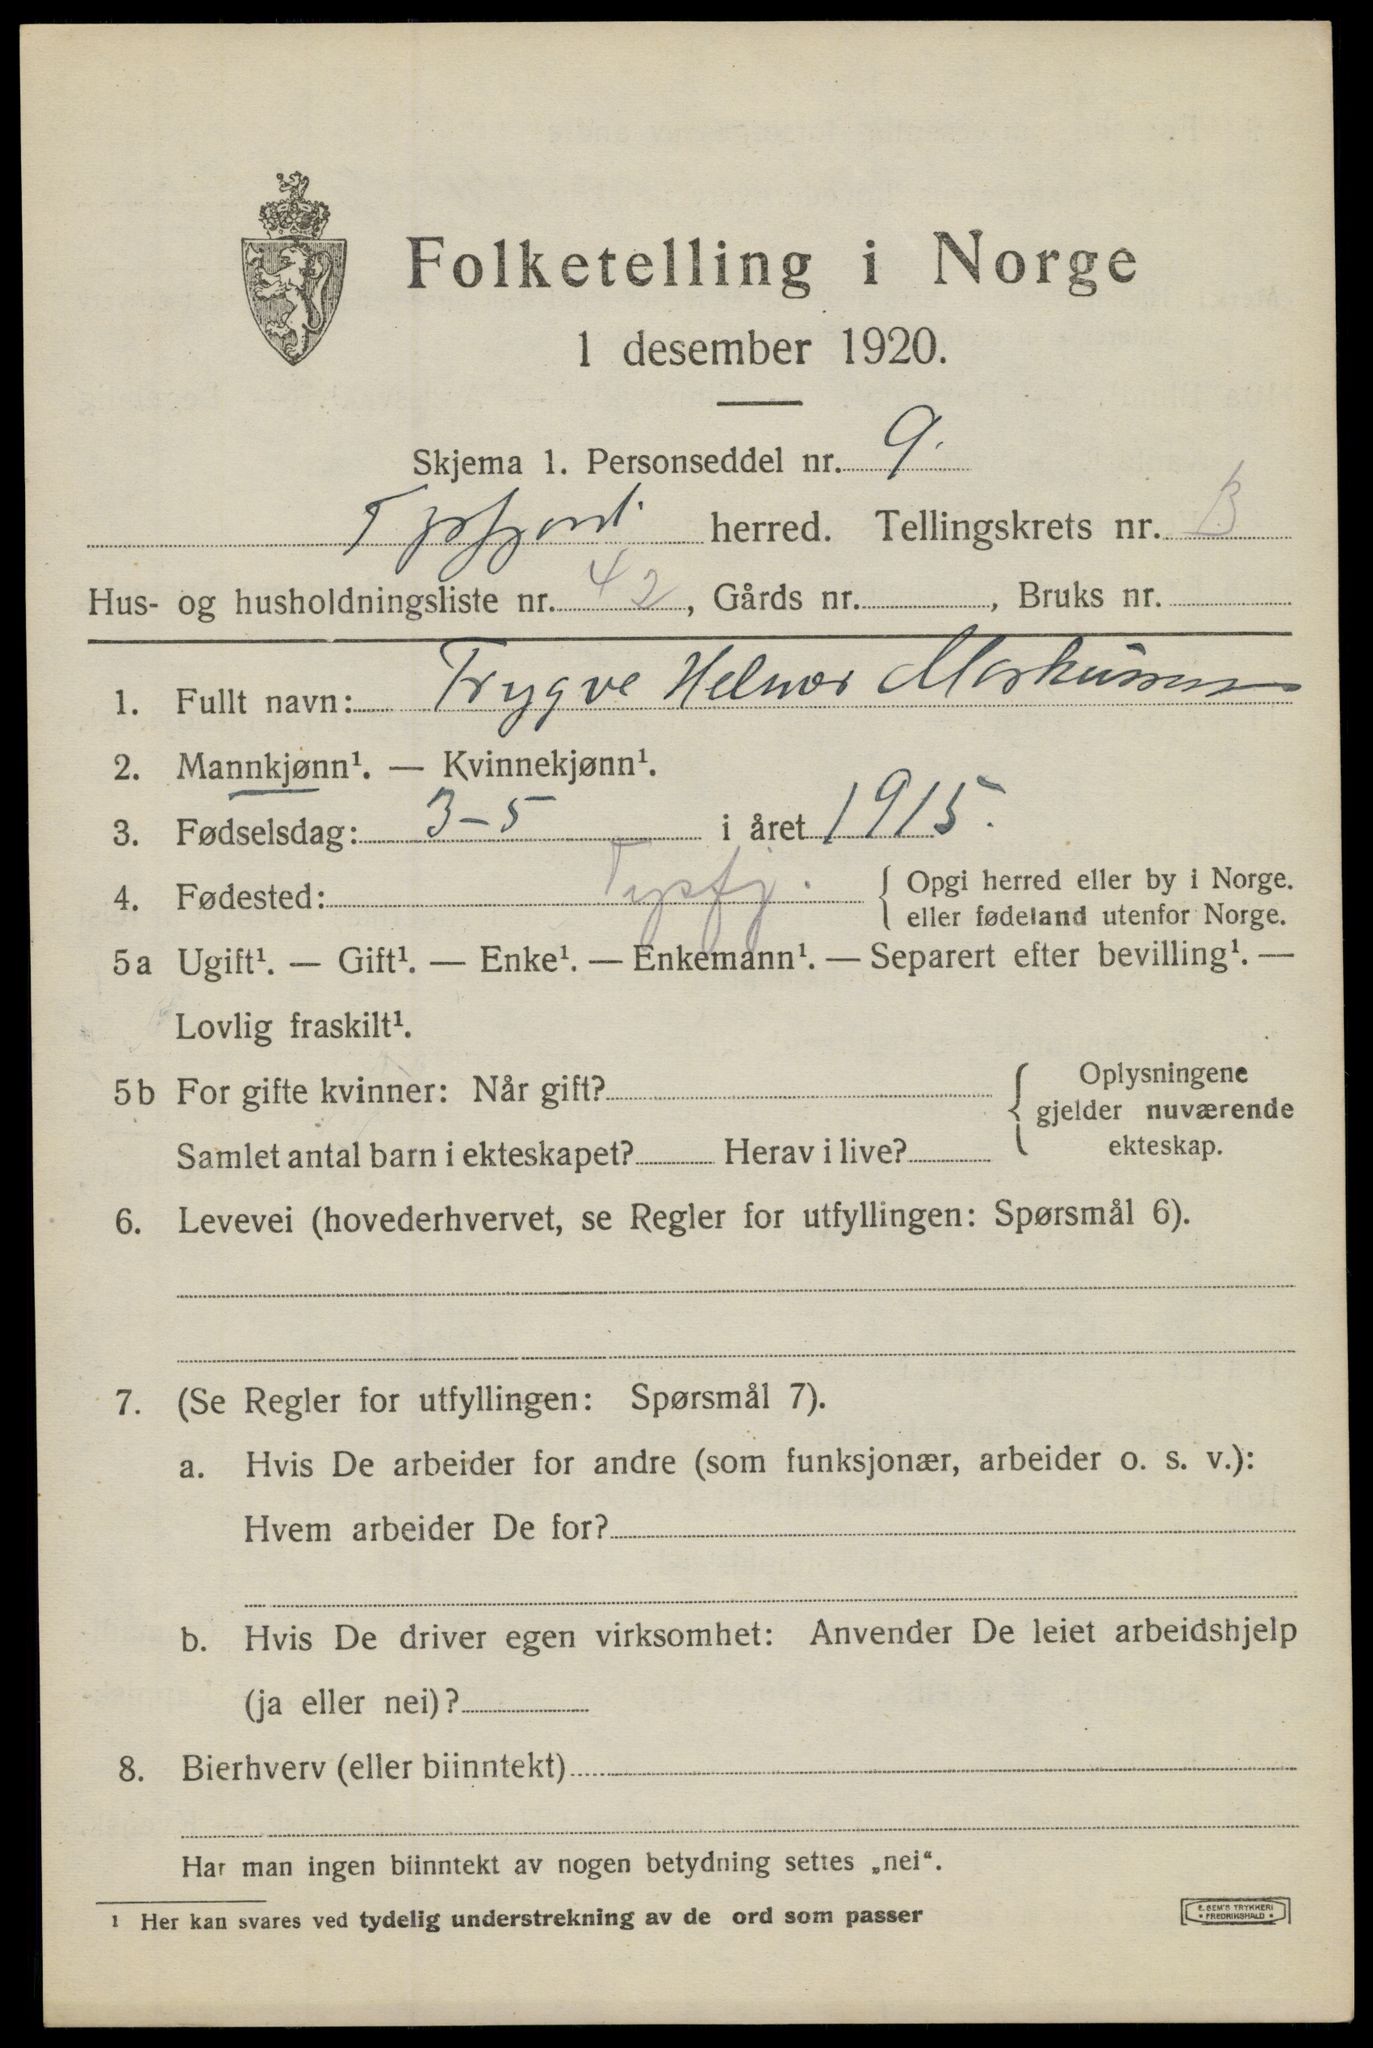 Folketelling i Norge
1 desember 1920.
Skjema 1. Personseddel nr. 9.
Tysfjord herred. Tellingskrets nr. B
Hus- og husholdningsliste nr. 42, Gårds nr. , Bruks nr.
1. Fullt navn: Trygve Helmor Markussen
2. Mannkjønn¹. — Kvinnekjønn¹.
3. Fødselsdag: 3-5 i året 1915.
4. Fødested: Tysfj. { Opgi herred eller by i Norge.
eller fødeland utenfor Norge.
5a Ugift¹. — Gift¹. — Enke¹. — Enkemann¹. — Separert efter bevilling¹. —
Lovlig fraskilt¹.
5b For gifte kvinner: Når gift?
Samlet antal barn i ekteskapet? Herav i live?
{ Oplysningene
gjelder nuværende
ekteskap.
6. Levevei (hovederhvervet, se Regler for utfyllingen: Spørsmål 6).
7. (Se Regler for utfyllingen: Spørsmål 7).
a. Hvis De arbeider for andre (som funksjonær, arbeider o. s. v.):
Hvem arbeider De for?
b. Hvis De driver egen virksomhet: Anvender De leiet arbeidshjelp
(ja eller nei)?
8. Bierhverv (eller biinntekt)
Har man ingen biinntekt av nogen betydning settes „nei“.
1 Her kan svares ved tydelig understrekning av de ord som passer
E. SEM'S TRYKKERI
• FREDRIKSHALD •